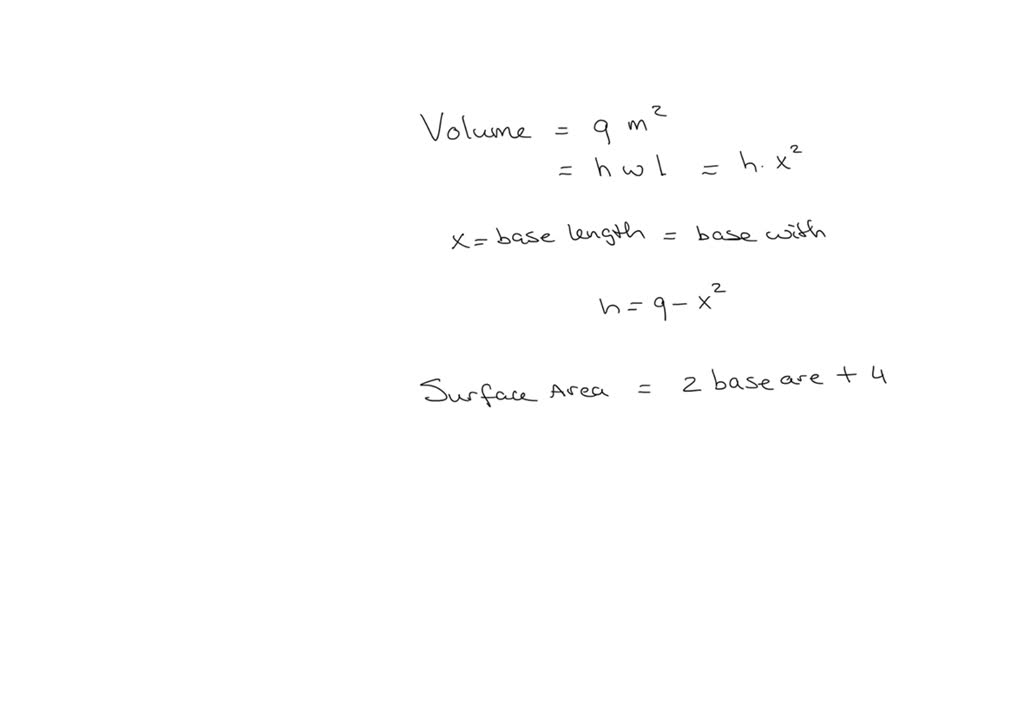 Volume = 9 m²
= h w l = h · x²
x = base length = base with
h = 9 - x²
Surface Area = 2 base are + 4